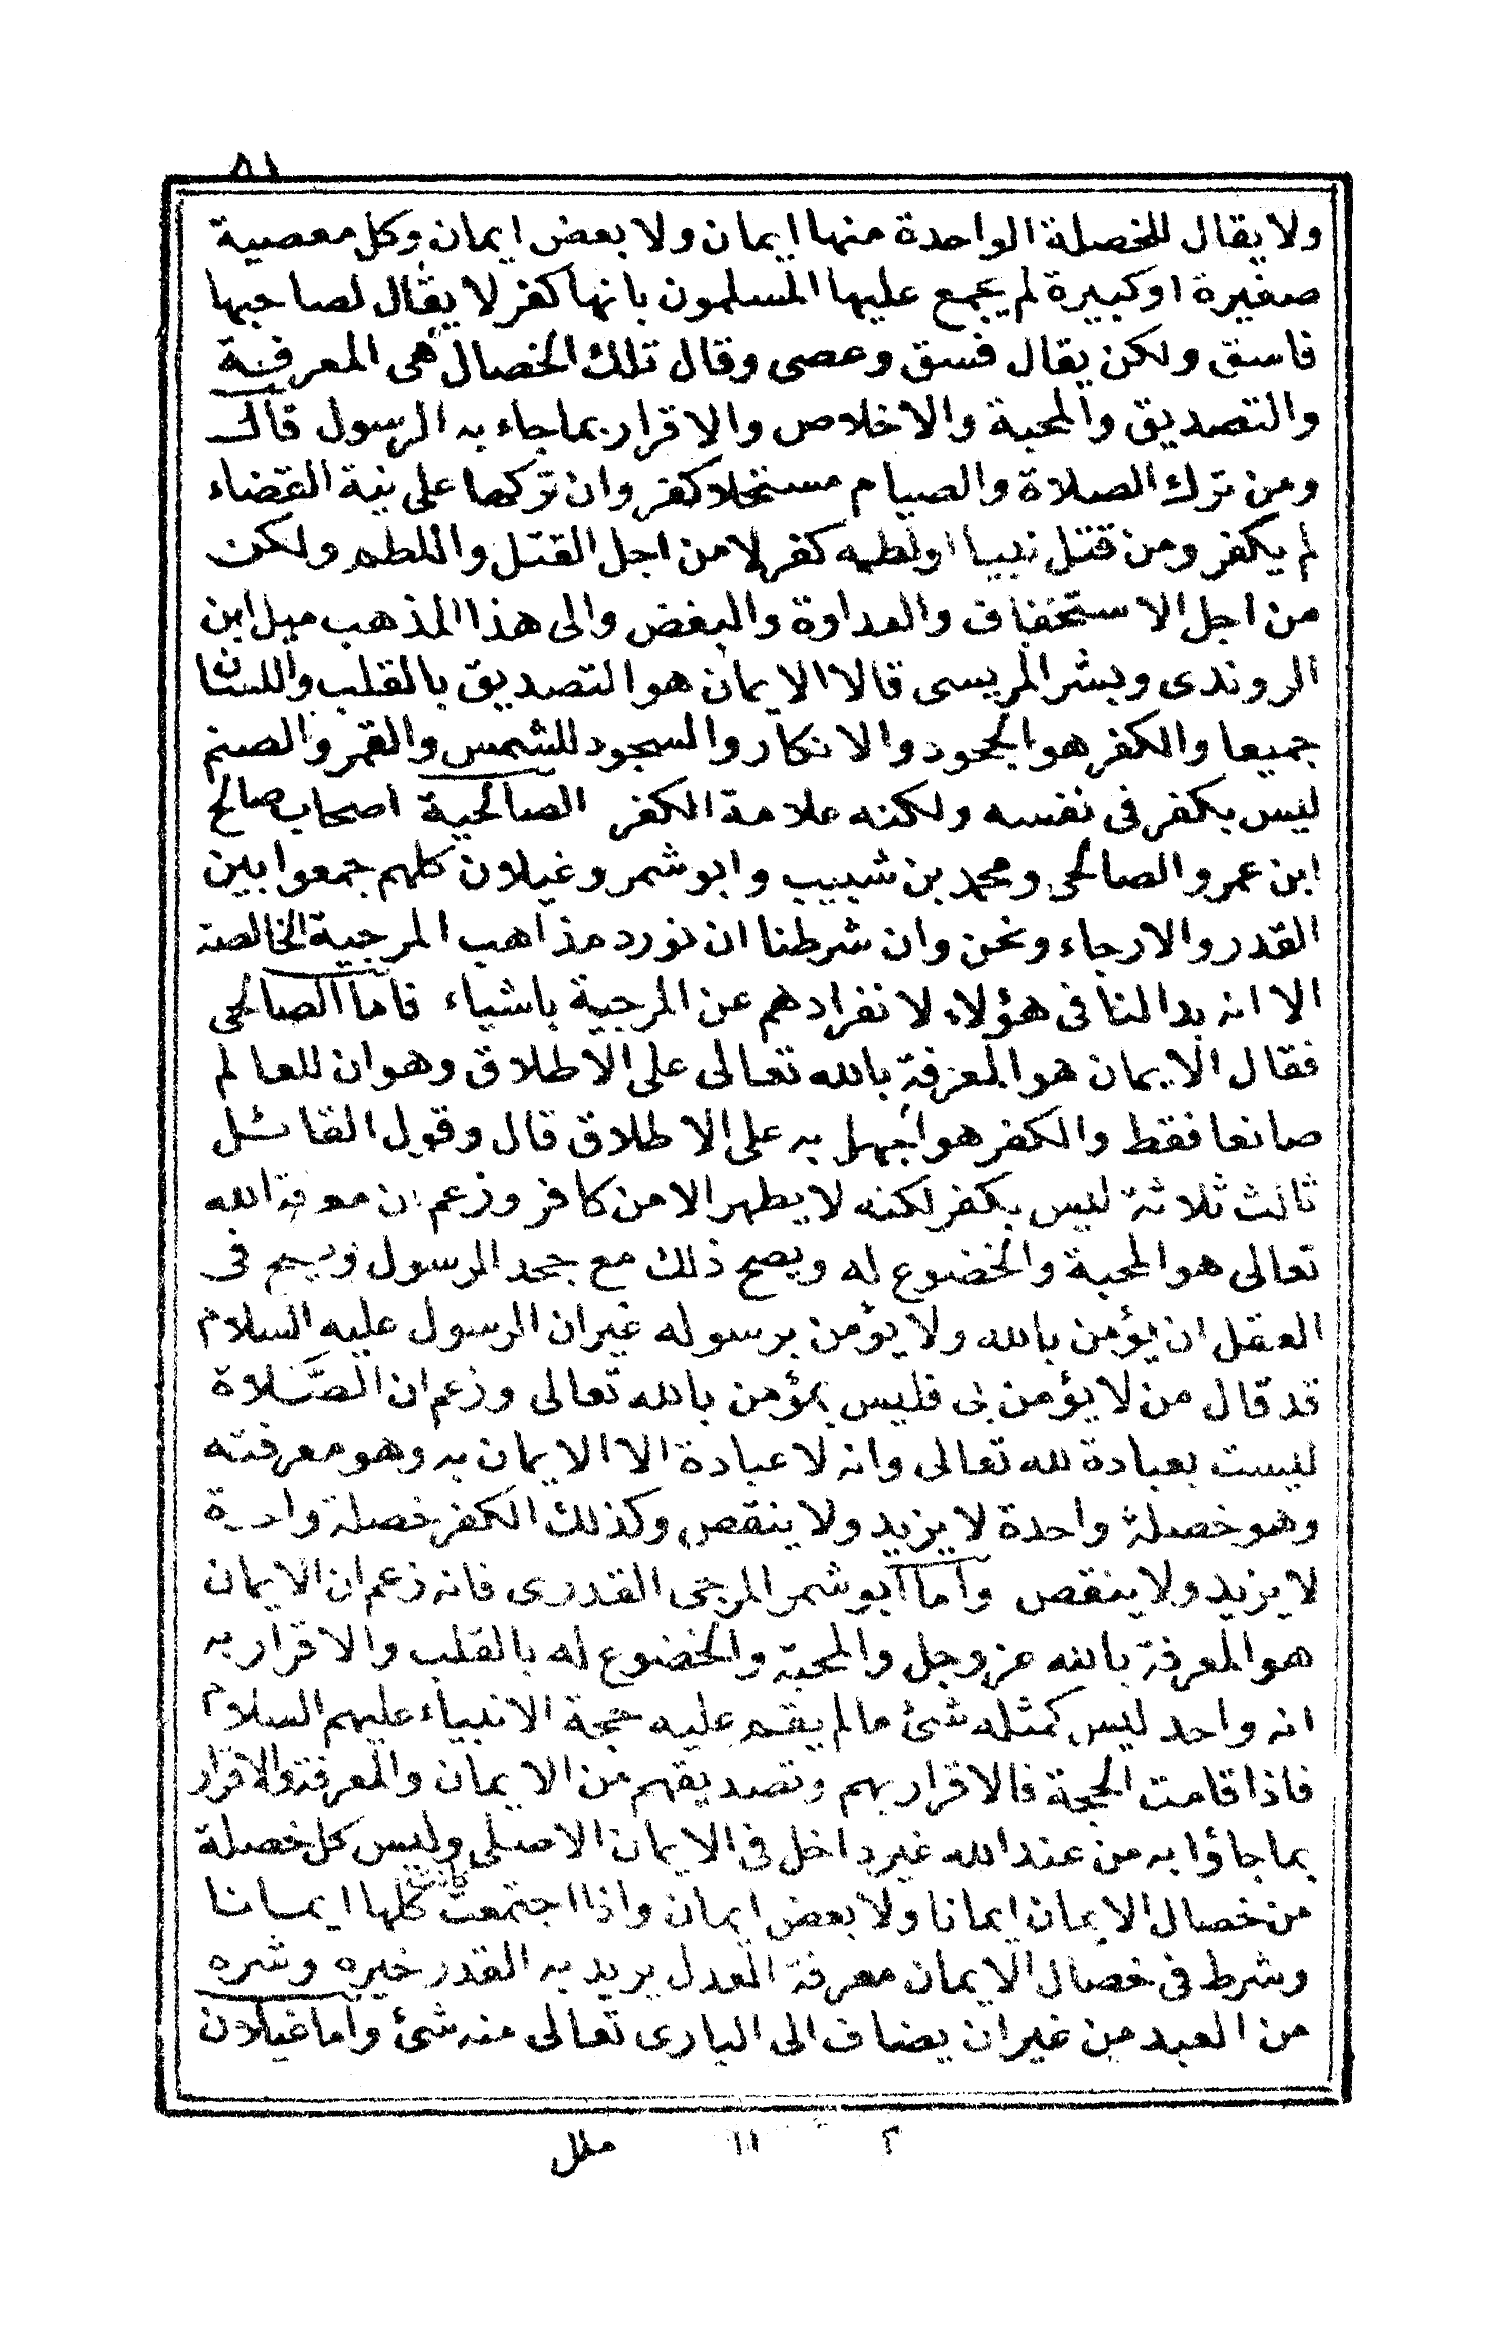 ٨١
ولا يقال للخصلة الواحدة منها ايمان ولا بعض ايمان وكل معصية
صغيرة اوكبيرة لم يجمع عليها المسلمون بانها كفر لا يقال لصاحبها
فاسق ولكن يقال فسق وعصى وقال تلك الخصال هى المعرفة
والتصديق والمحبة والاخلاص والاقرار بماجاء به الرسول قال
ومن ترك الصلاة والصيام مستحلا كفر وان تركها على نية القضاء
لم يكفر ومن قتل نبيا اولطمه كفر لا من اجل القتل واللطم ولكن
من اجل الاستخفاف والعداوة والبغض والى هذا المذهب ميل ابن
الروندى وبشر المريسى قالا الايمان هوالتصديق بالقلب واللسان
جميعا والكفر هوالجحود والانكار والسجود للشمس والقمر والصنم
ليس بكفر فى نفسه ولكنه علامة الكفر الصالحية اصحاب صالح
ابن عمرو الصالحى ومحمد بن شبيب وابو شمر وغيلان كلهم جمعوا بين
القدر والارجاء ونحن وان شرطنا ان نورد مذاهب المرجية الخالصة
الا انه بدا لنا فى هؤلاء لانفرادهم عن المرجية باشياء فاما الصالحى
فقال الايمان هوالمعرفة بالله تعالى على الاطلاق وهوان للعالم
صانعا فقط والكفر هو الجهل به على الاطلاق قال وقول القائل
ثالث ثلاثة ليس بكفر لكنه لا يظهر الا من كافر وزعم ان معرفة الله
تعالى هوالمحبة والخضوع له ويصح ذلك مع جحد الرسول ويصح فى
العقل ان يؤمن بالله ولا يؤمن برسوله غير ان الرسول عليه السلام
قد قال من لا يؤمن بى فليس بمؤمن بالله تعالى وزعم ان الصَّلاة
ليست بعبادة لله تعالى وانه لا عبادة الا الايمان به وهو معرفته
وهو خصلة واحدة لا يزيد ولا ينقص وكذلك الكفر خصلة واحدة
لا يزيد ولا ينقص واما ابو شمر المرجى القدرى فانه زعم ان الايمان
هوالمعرفة بالله عز وجل والمحبة والخضوع له بالقلب والاقرار به
انه واحد ليس كمثله شئ مالم يقم عليه حجة الانبياء عليهم السلام
فاذا قامت الحجة فالاقرار بهم وتصديقهم من الايمان والمعرفة والاقرار
بما جاؤا به من عندالله غير داخل فى الايمان الاصلى وليس كل خصلة
من خصال الايمان ايمانا ولا بعض ايمان واذا اجتمعت كانت كلها ايمانا
وشرط فى خصال الايمان معرفة العدل يريد به القدر خيره وشره
من العبد من غير ان يضاف الى البارى تعالى منه شئ واما غيلان
٢ ١١ ملل